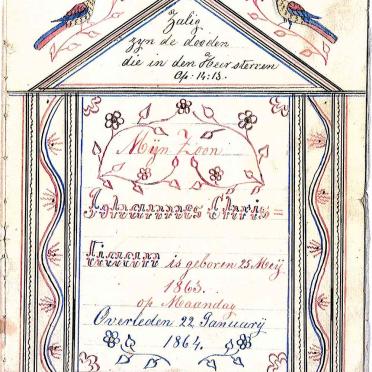 Zalig
zyn de dooden
die in den Heer sterven
Op. 14:13.
Mijn Zoon
Johannes Chris=
tiaan is geboren 25 Meij
1863.
op Maandag
Overleden 22 Januarij
1864.